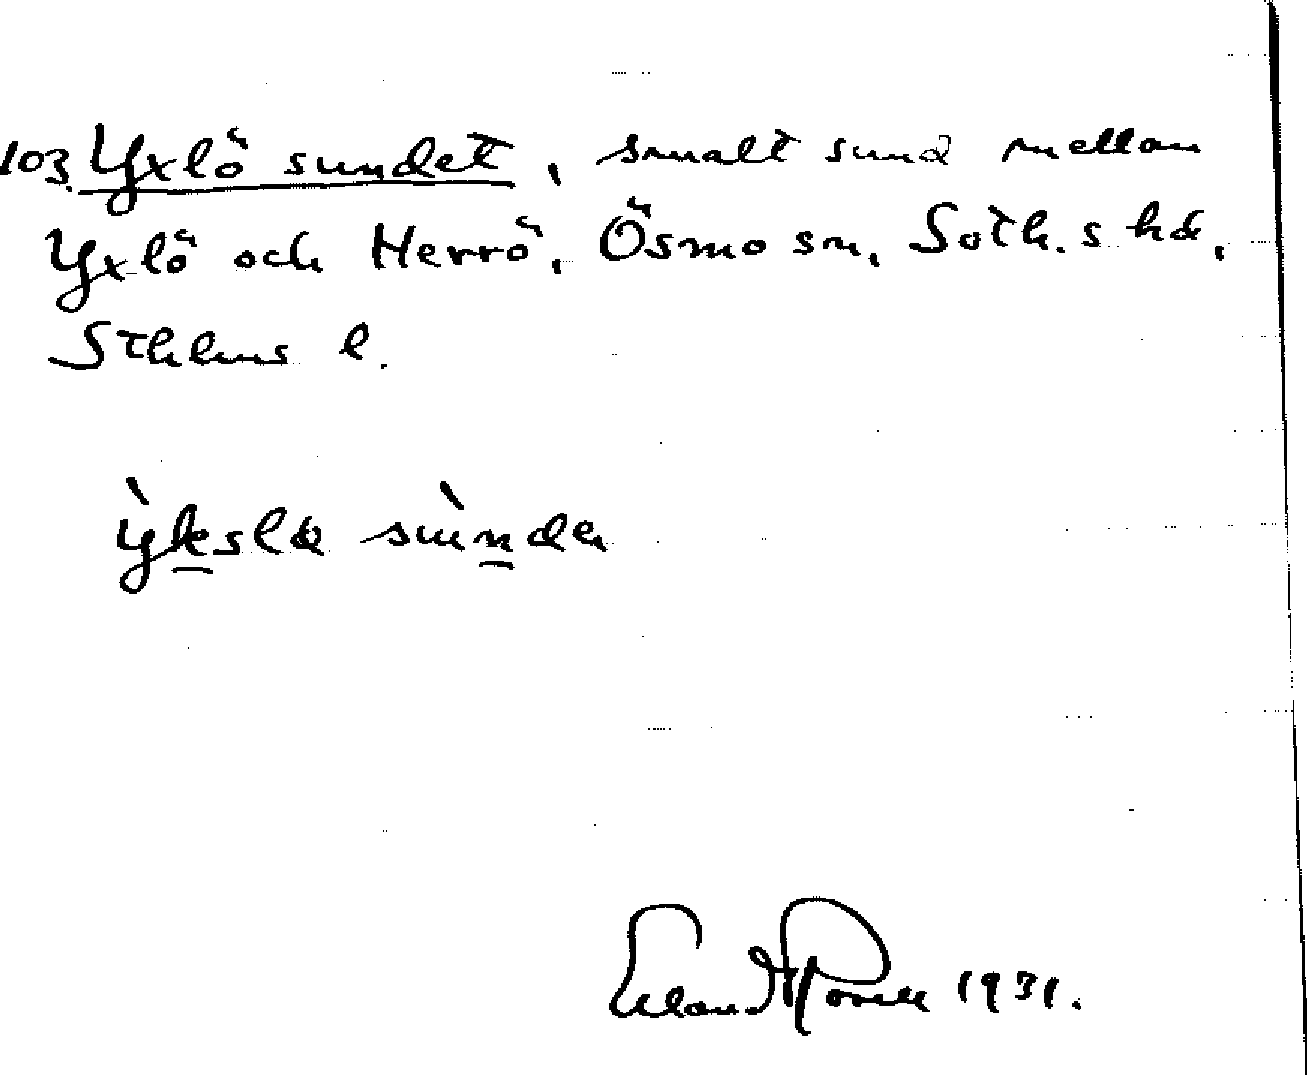 103. Yxlö sundet, smalt sund mellan
Yxlö och Herrö, Ösmo sn, Soth.s hd,
Sthlms l.
sùndə
Erland Rosell 1931.